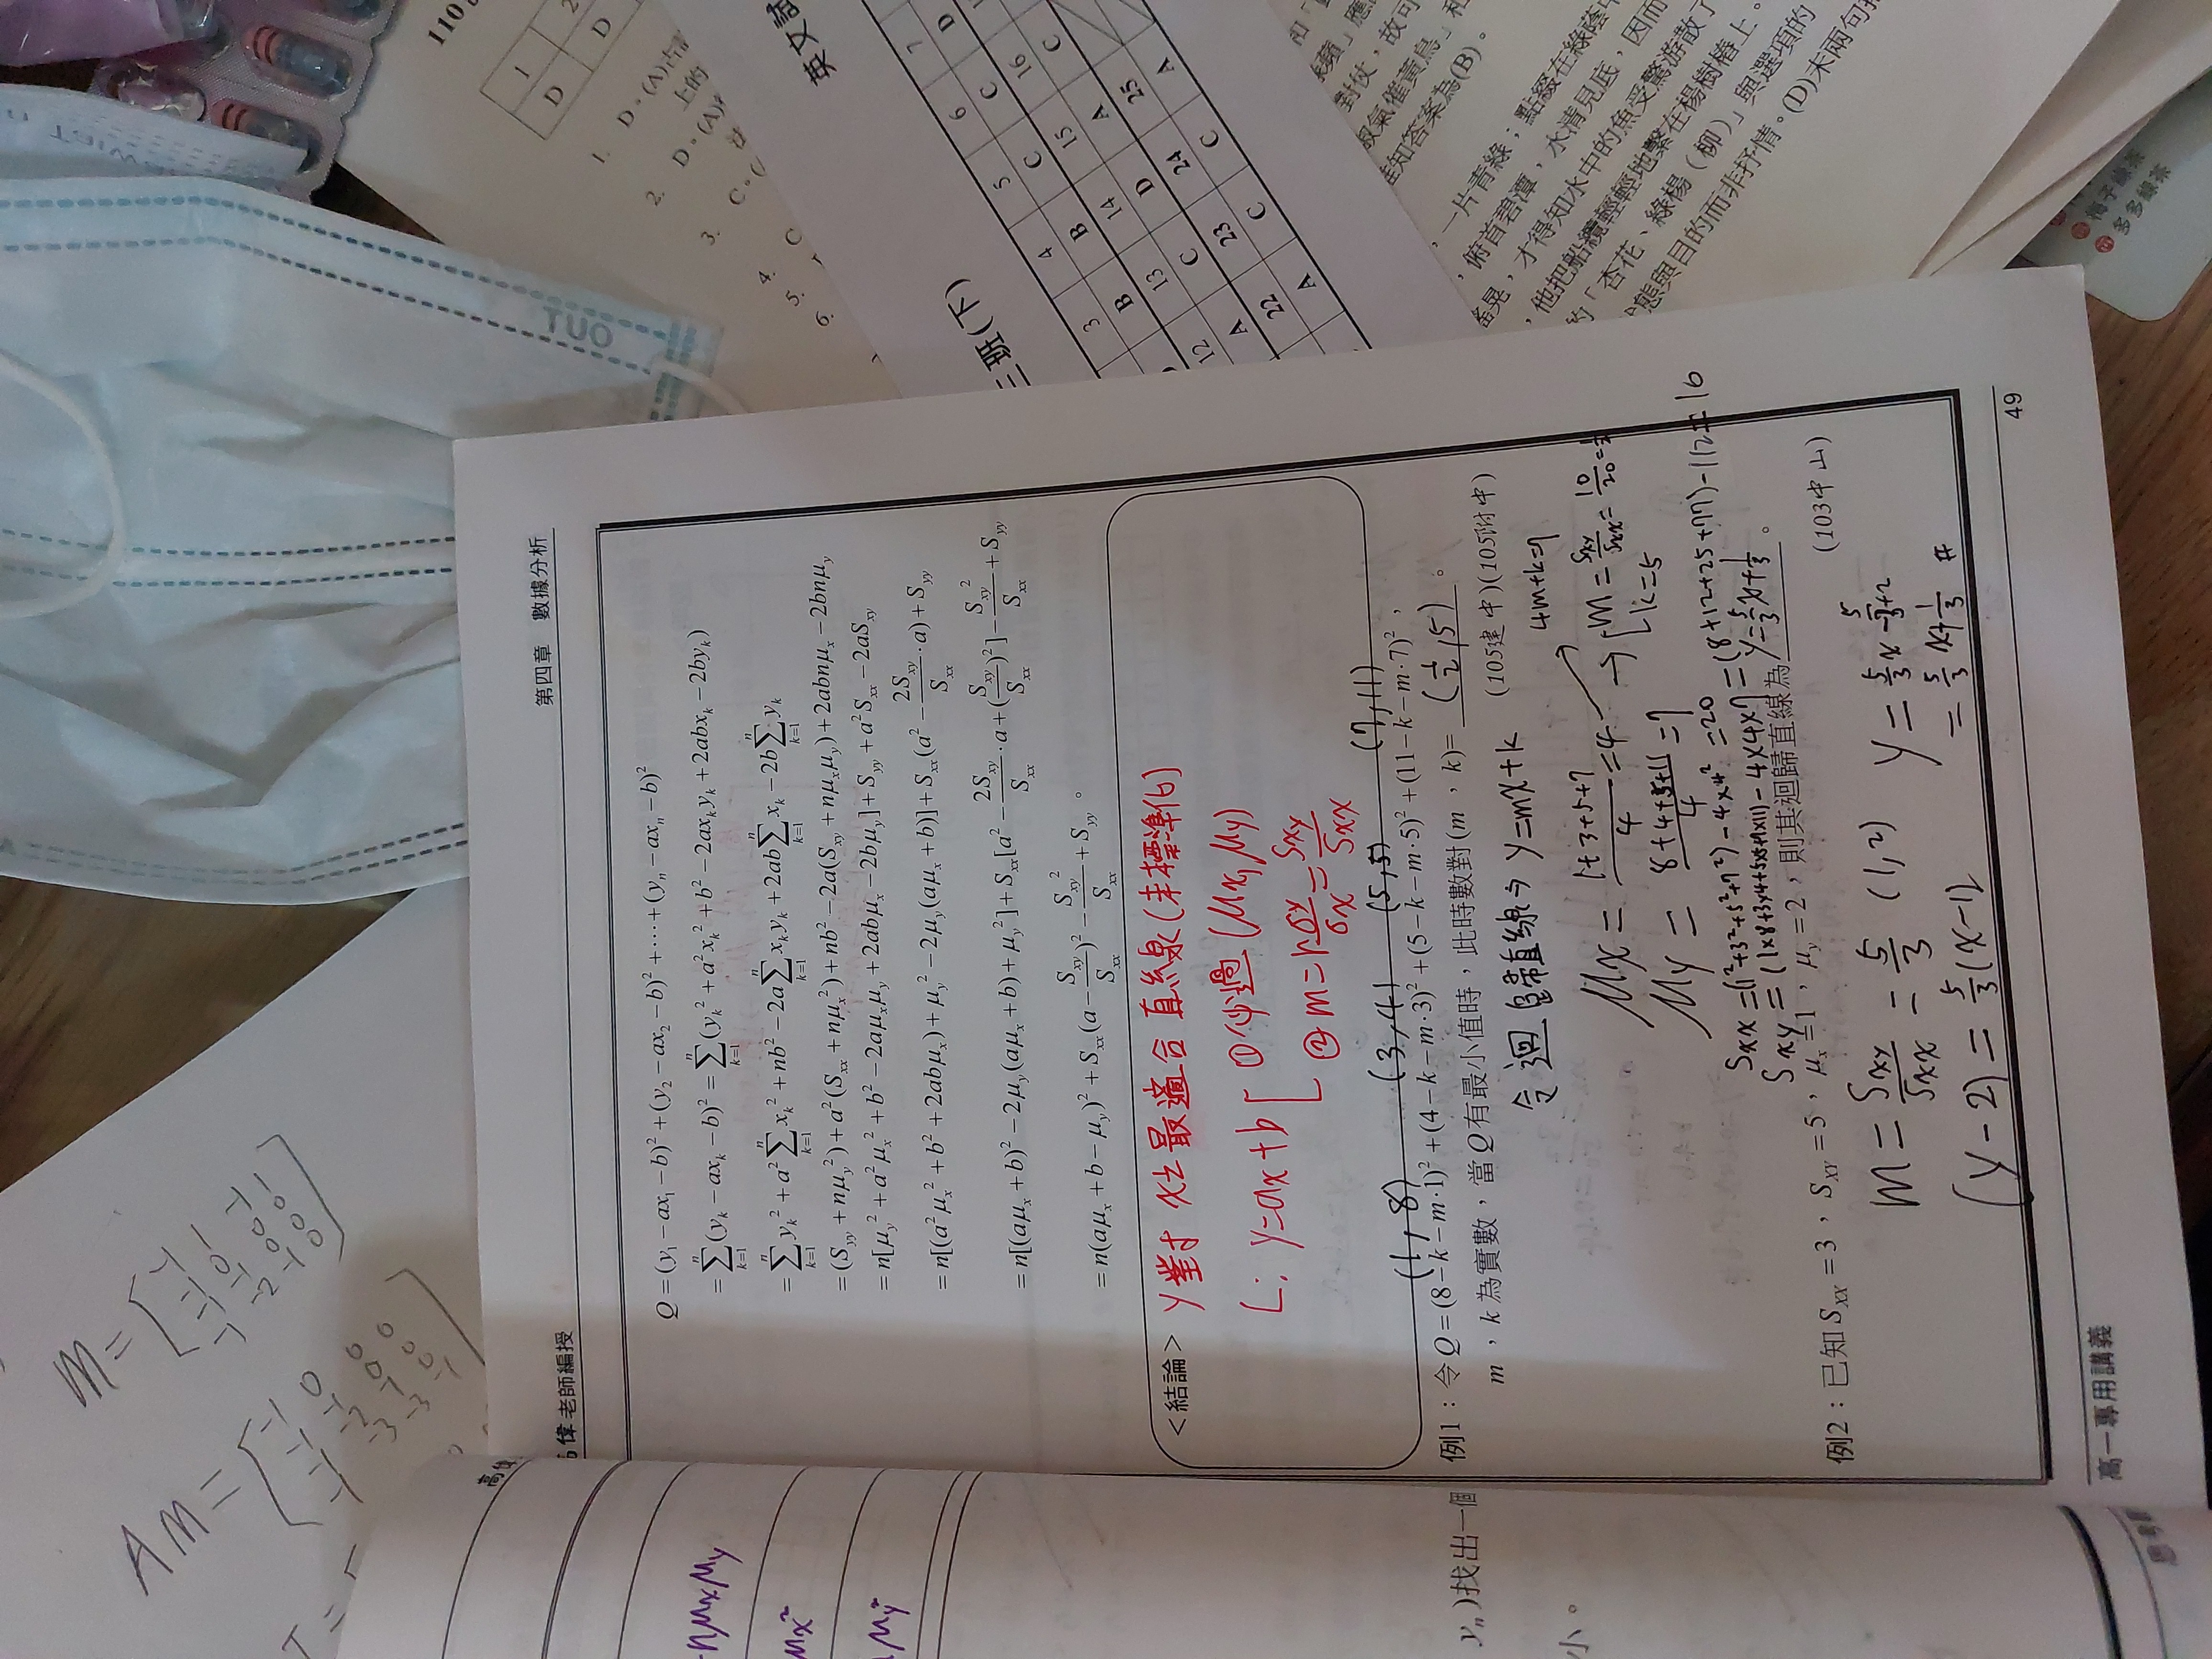 M=
AM=
高偉
-nμxμy
μx²
μy²
yn)找出一個
小。
偉老師編授
第四章 數據分析
Q=(y₁-ax₁-b)²+(y₂-ax₂-b)²+⋯+(yₙ-axₙ-b)²
=∑ₖ₌₁ⁿ(yₖ-axₖ-b)²=∑ₖ₌₁ⁿ(yₖ²+a²xₖ²+b²-2axₖyₖ+2abxₖ-2byₖ)
=∑ₖ₌₁ⁿyₖ²+a²∑ₖ₌₁ⁿxₖ²+nb²-2a∑ₖ₌₁ⁿxₖyₖ+2ab∑ₖ₌₁ⁿxₖ-2b∑ₖ₌₁ⁿyₖ
=(S_yy+nμ_y²)+a²(S_xx+nμ_x²)+nb²-2a(S_xy+nμ_xμ_y)+2abnμ_x-2bnμ_y
=n[μ_y²+a²μ_x²+b²-2aμ_xμ_y+2abμ_x-2bμ_y]+S_yy+a²S_xx-2aS_xy
=n[(a²μ_x²+b²+2abμ_x)+μ_y²-2μ_y(aμ_x+b)]+S_xx(a²-2S_xy/S_xx·a)+S_yy
=n[(aμ_x+b)²-2μ_y(aμ_x+b)+μ_y²]+S_xx[a²-2S_xy/S_xx·a+(S_xy/S_xx)²]-S_xy²/S_xx+S_yy
=n(aμ_x+b-μ_y)²+S_xx(a-S_xy/S_xx)²-S_xy²/S_xx+S_yy。
<結論> y對x之最適合直線(未標準化)
L: y=ax+b ①必過(μx,μy)
②m=r σy/σx=Sxy/Sxx
(1,8) (3,4) (5,5) (7,11)
例1：令Q=(8-k-m·1)²+(4-k-m·3)²+(5-k-m·5)²+(11-k-m·7)²，
m，k為實數，當Q有最小值時，此時數對(m，k)= (1/2,5)。
(105建中)(105附中)
令迴歸直線→y=mx+k
4m+k=7
μx=(1+3+5+7)/4=4
→ m=Sxy/Sxx=10/20=1/2
k=5
μy=(8+4+5+11)/4=7
Sxx=(1²+3²+5²+7²)-4×4²=20
Sxy=(1×8+3×4+5×5+7×11)-4×4×7=(8+12+25+77)-112=10
例2：已知S_XX=3，S_XY=5，μ_x=1，μ_y=2，則其迴歸直線為y=5/3x+1/3。
(103中山)
m=Sxy/Sxx=5/3 (1,2)
y=5/3x-5/3+2
=5/3x+1/3 #
(y-2)=5/3(x-1)
49
高一專用講義
TUO
110
1 2
D D
1. D。(A)
上的
2. D。(A)
3. C。
4. C
5.
6.
英文試
三班(下)
3 4 5 6 7
B B C C D
12 13 14 15 16
A C D A C
22 23 24 25
A C C A
對仗，故可
淑氣催黃鳥」和
佳知答案為(B)。
，一片青綠；點綴在綠蔭中
，俯首碧潭，水清見底，因而
搖晃，才得知水中的魚受驚游散了
，他把船纜輕輕地繫在楊樹樁上。
的「杏花、綠楊（柳）」與選項的
態與目的而非抒情。(D)末兩句
梅子綠茶
多多綠茶